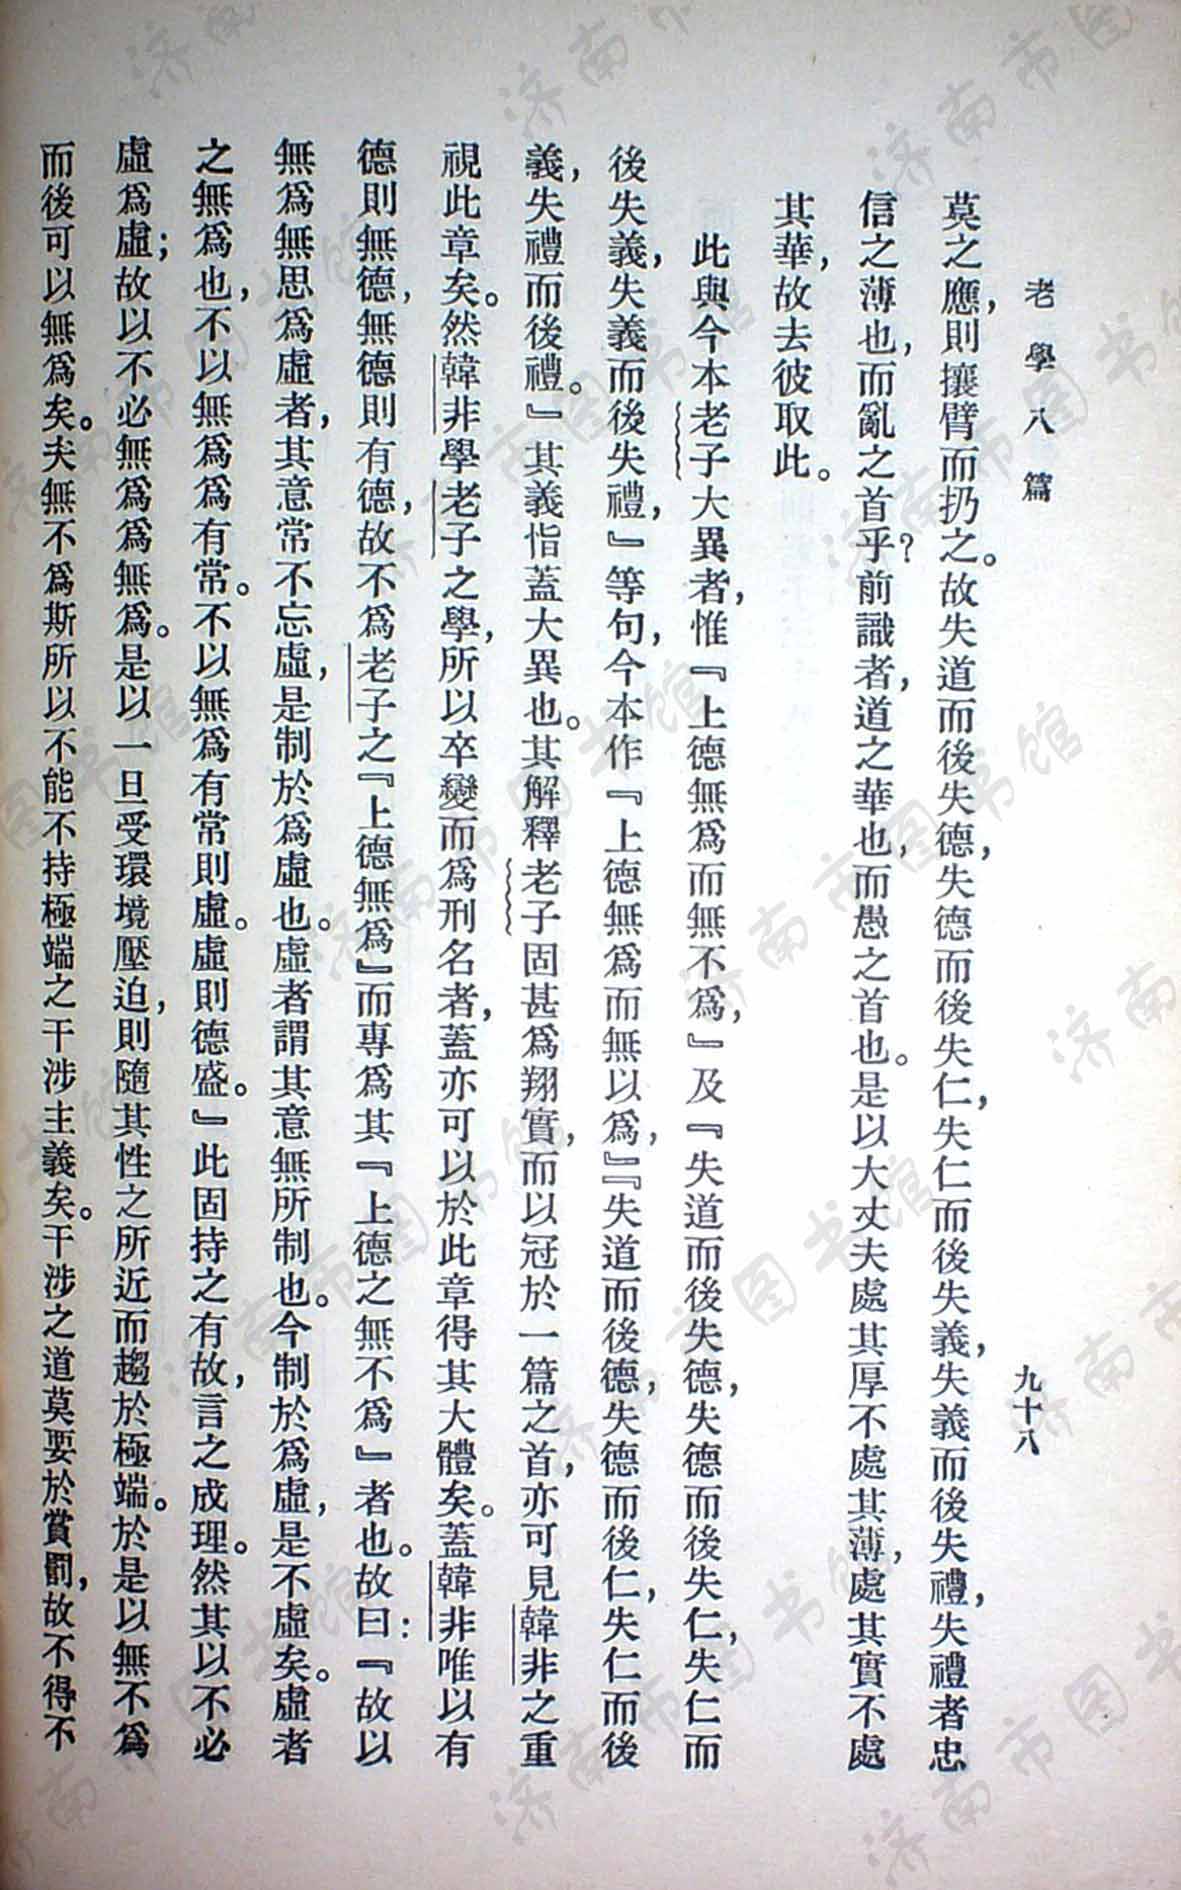 老學八篇
九十八
莫之應，則攘臂而扔之。故失道而後失德，失德而後失仁，失仁而後失義，失義而後失禮，失禮者忠
信之薄也，而亂之首乎？前識者，道之華也，而愚之首也。是以大丈夫處其厚不處其薄，處其實不處
其華，故去彼取此。
此與今本老子大異者，惟『上德無爲而無不爲，』及『失道而後失德，失德而後失仁，失仁而
後失義，失義而後失禮，』等句，今本作『上德無爲而無以爲，』『失道而後德，失德而後仁，失仁而後
義，失禮而後禮。』其義恉蓋大異也。其解釋老子固甚爲翔實，而以冠於一篇之首，亦可見韓非之重
視此章矣。然韓非學老子之學，所以卒變而爲刑名者，蓋亦可以於此章得其大體矣。蓋韓非唯以有
德則無德，無德則有德，故不爲老子之『上德無爲』而專爲其『上德之無不爲』者也。故曰：『故以
無爲無思爲虛者，其意常不忘虛，是制於爲虛也。虛者謂其意無所制也。今制於爲虛，是不虛矣。虛者
之無爲也，不以無爲爲有常。不以無爲有常則虛。虛則德盛。』此固持之有故，言之成理。然其以不必
虛爲虛；故以不必無爲爲無爲。是以一旦受環境壓迫，則隨其性之所近而趨於極端。於是以無不爲
而後可以無爲矣。夫無不爲斯所以不能不持極端之干涉主義矣。干涉之道莫要於賞罰，故不得不
济南市图书馆